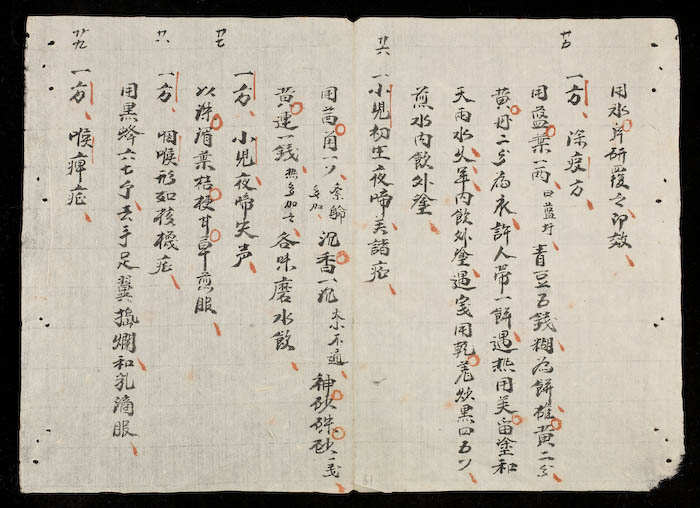 用水片研覆之即效
廿五
一方除疫方
用藍葉一兩 曰藍 青豆五錢糊為餅雄黃二分
黃丹二分為衣許人帶一餅遇熱用塗和
天雨水久年內飲外塗遇用乾羌炊黑四五
煎水內飲外塗
廿六
一小兒初生夜啼諸症
用角一 沉香一 大小不通 神砂硃砂一戔
黃連一錢 熱多加七 各味磨水飲
廿七
一方小兒夜啼失声
以葉桔梗甘草煎服
一方咽喉形如核症
用黑蜂六七个去手足翼搗爛和乳滴服
廿九
一方喉痺症
61